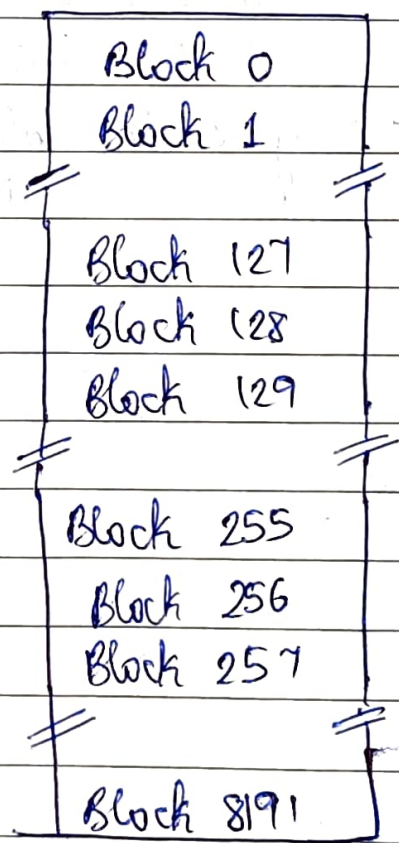 Block 0
Block 1
Block 127
Block 128
Block 129
Block 255
Block 256
Block 257
Block 8191